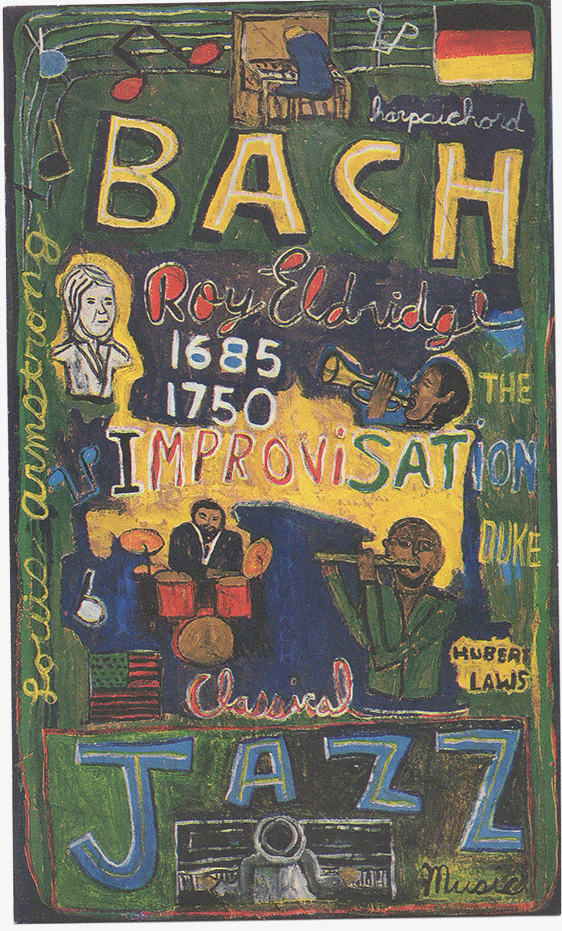 harpsichord
BACH
Louis armstrong
Roy Eldridge
1685
1750
THE
IMPROViSATiON
DUKE
HUBERT
LAWS
Classical
JAZZ
Music